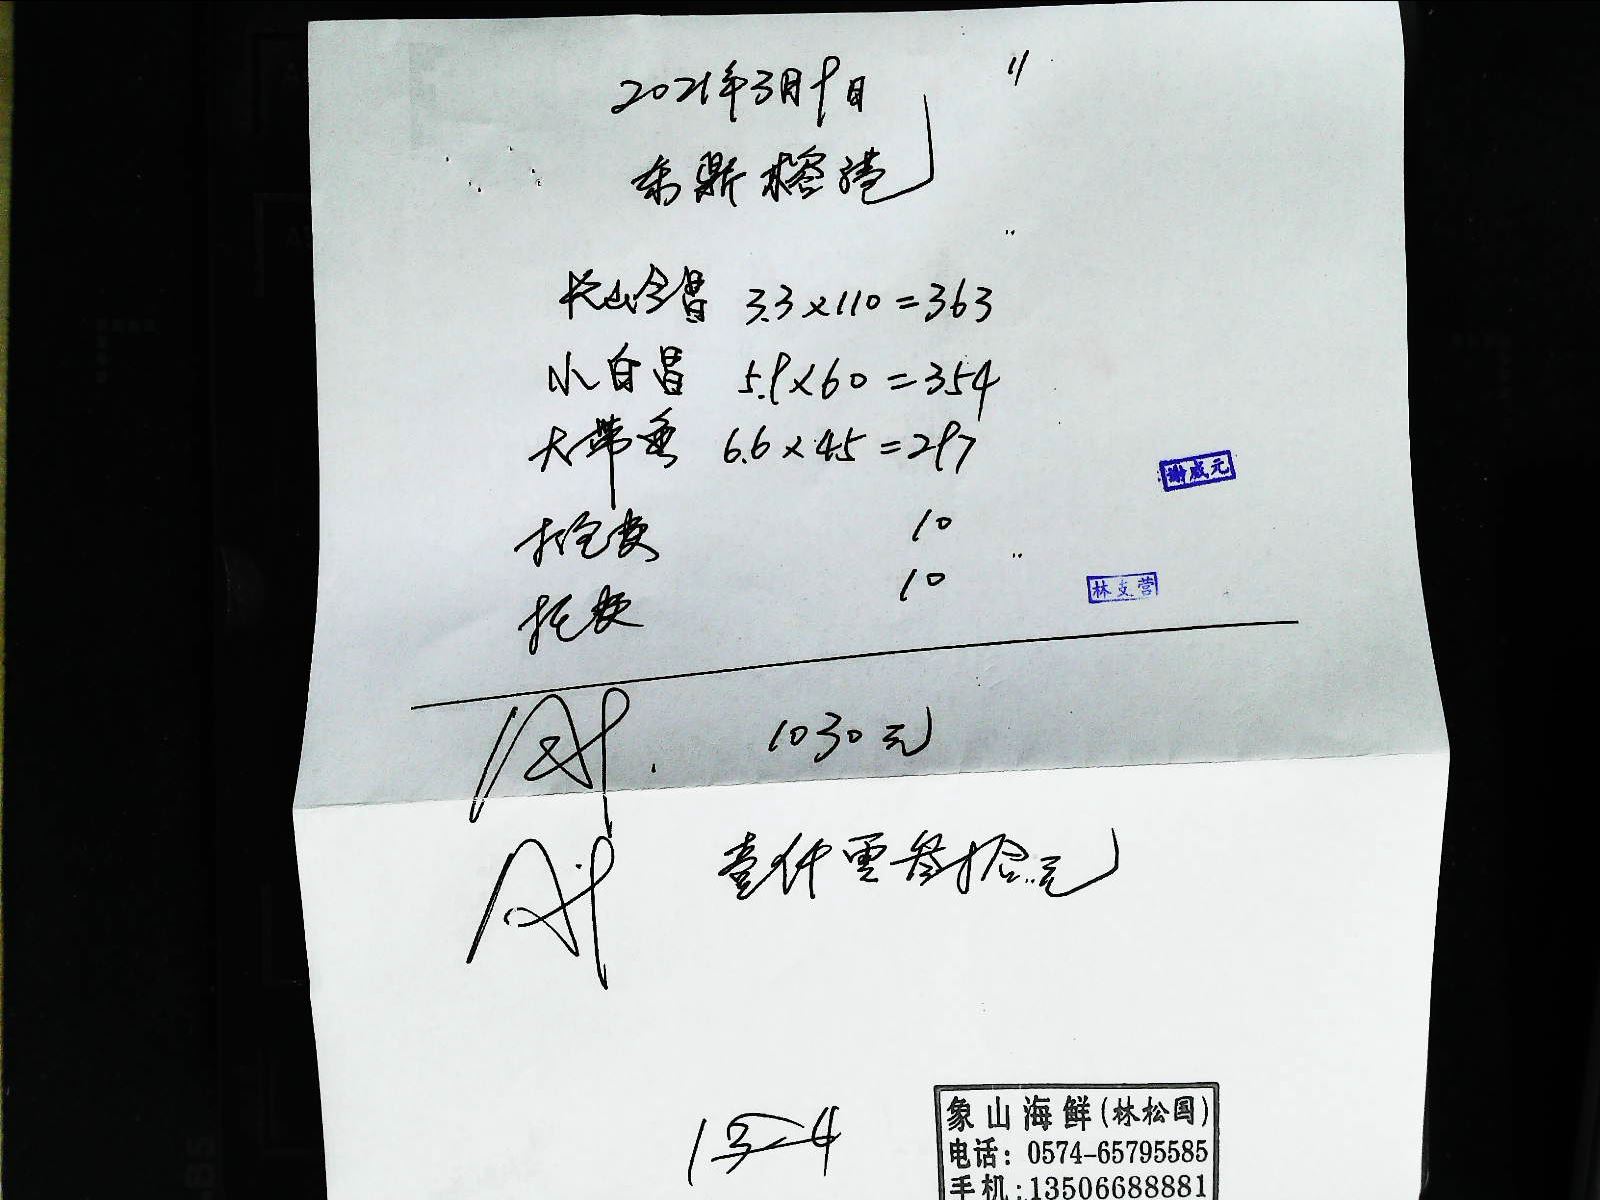 2021年3月9日
东鼎榕港
长山今昌 3.3×110=363
小白昌 5.9×60=354
大带鱼 6.6×45=297
打包费 10
托费 10
1030元
壹仟零叁拾元
谢成元
林支营
象山海鲜(林松国)
电话:0574-65795585
手机:13506688881